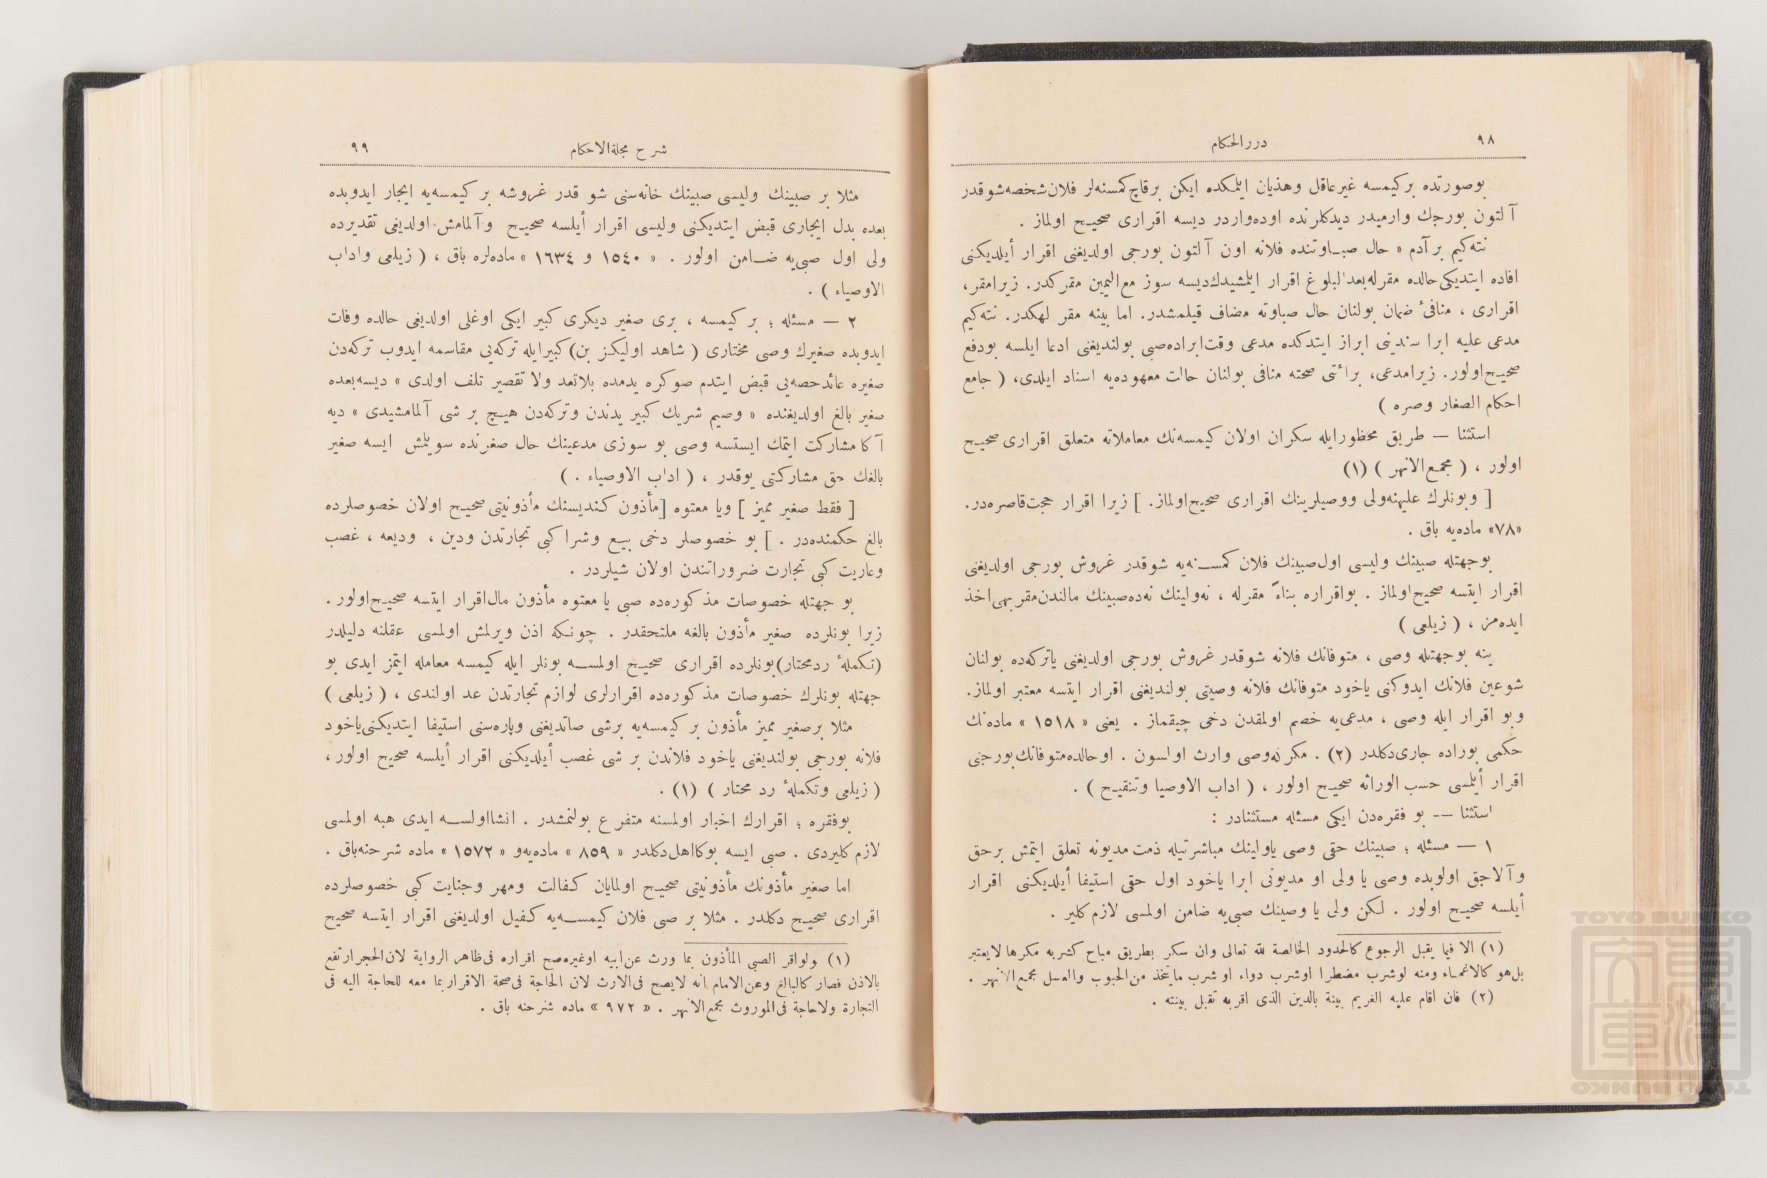 ٩٨
دررالحكام
بوصورتده بركيمسه غيرعاقل وهذيان ايلمكده ايكن برقاچ كمسنه‌لر فلان شخصه شوقدر
آلتون بورجك وارميدر ديدكلرنده اوده واردر ديسه اقرارى صحيح اولماز .
نته‌كيم برآدم « حال صباوتنده فلانه اون آلتون بورجى اولديغنى اقرار أيلديكنى
افاده ايتديكى حالده مقرله بعد البلوغ اقرار ايلمشيدك ديسه سوز مع اليمين مقركدر. زيرا مقر،
اقرارى ، منافئ ضمان بولنان حال صباوته مضاف قيلمشدر. اما بينه مقر لهكدر. نته‌كيم
مدعى عليه ابرا سندينى ابراز ايتدكده مدعى وقت ابراده صبى بولنديغنى ادعا ايلسه بودفع
صحيح اولور. زيرا مدعى، برائتى صحته منافى بولنان حالت معهوده‌يه اسناد ايلدى، ( جامع
احكام الصغار وصره )
استثنا — طريق محظور ايله سكران اولان كيمسه‌نك معاملاته متعلق اقرارى صحيح
اولور ، ( مجمع الانهر ) (١)
[ وبونلرك عليهنه ولى ووصيلرينك اقرارى صحيح اولماز. ] زيرا اقرار حجت قاصره‌در.
«٧٨» ماده‌يه باق .
بوجهتله صبينك وليسى اول صبينك فلان كمسنه‌يه شوقدر غروش بورجى اولديغنى
اقرار ايتسه صحيح اولماز . بواقراره بناءً مقرله ، نه ولينك نه‌ده صبينك مالندن مقربهى اخذ
ايده‌مز ، ( زيلعى )
ينه بوجهتله وصى ، متوفانك فلانه شوقدر غروش بورجى اولديغنى ياتركه‌ده بولنان
شوعين فلانك ايدوكنى ياخود متوفانك فلانه وصيتى بولنديغنى اقرار ايتسه معتبر اولماز.
وبو اقرار ايله وصى ، مدعى‌يه خصم اولمقدن دخى چيقماز . يعنى « ١٥١٨ » ماده‌نك
حكمى بوراده جارى دكلدر (٢) . مكر نه‌وصى وارث اولسون . اوحالده متوفانك بورجنى
اقرار أيلمسى حسب الوراثه صحيح اولور ، ( اداب الاوصيا وتنقيح ) .
استثنا -- بو فقره‌دن ايكى مسئله مستثنادر :
١ — مسئله ؛ صبينك حقى وصى ياولينك مباشرتيله ذمت مديونه تعلق ايتمش برحق
و آلاجق اولوبده وصى يا ولى او مديونى ابرا ياخود اول حقى استيفا أيلديكنى اقرار
أيلسه صحيح اولور . لكن ولى يا وصينك صبى‌يه ضامن اولمسى لازم كلير .
(١) الا فيما يقبل الرجوع كالحدود الخالصة لله تعالى وان سكر بطريق مباح كشربه مكرها لايعتبر
بل هو كالاغماء ومنه لوشرب مضطرا اوشرب دواء او شرب مايتخذ من الحبوب والعسل مجمع الانهر .
(٢) فان اقام عليه الغريم بينة بالدين الذى اقربه تقبل بينته .
٩٩
شرح مجلةالاحكام
مثلا بر صبينك وليسى صبينك خانه‌سنى شو قدر غروشه بر كيمسه‌يه ايجار ايدوبده
بعده بدل ايجارى قبض ايتديكنى وليسى اقرار أيلسه صحيح و آلمامش اولديغى تقديرده
ولى اول صبى‌يه ضامن اولور . « ١٥٤٠ و ١٦٣٤ » ماده‌لره باق ، ( زيلعى واداب
الاوصياء ) .
٢ — مسئله ؛ بر كيمسه ، برى صغير ديكرى كبير ايكى اوغلى اولديغى حالده وفات
ايدوبده صغيرك وصى مختارى ( شاهد اوليكز بن) كبيرايله تركه‌يى مقاسمه ايدوب تركه‌دن
صغيره عائد حصه‌يى قبض ايتدم صوكره يدمده بلاتعد ولا تقصير تلف اولدى » ديسه بعده
صغير بالغ اولديغنده « وصيم شريك كبير يدندن وتركه‌دن هيچ بر شى آلمامشيدى » ديه
آكا مشاركت ايتمك ايستسه وصى بو سوزى مدعينك حال صغرنده سويلمش ايسه صغير
بالغك حق مشاركتى يوقدر ، ( اداب الاوصياء . )
[ فقط صغير مميز ] ويا معتوه [مأذون كنديسنك مأذونيتى صحيح اولان خصوصلرده
بالغ حكمنده‌در . ] بو خصوصلر دخى بيع وشرا كبى تجارتدن ودين ، وديعه ، غصب
وعاريت كبى تجارت ضروراتندن اولان شيلردر .
بو جهتله خصوصات مذكوره‌ده صبى يا معتوه مأذون مال اقرار ايتسه صحيح اولور .
زيرا بونلرده صغير مأذون بالغه ملتحقدر . چونكه اذن ويرلمش اولمسى عقلنه دليلدر
(تكملهٔ ردمحتار) بونلرده اقرارى صحيح اولمسه بونلر ايله كيمسه معامله ايتمز ايدى بو
جهتله بونلرك خصوصات مذكوره‌ده اقرارلرى لوازم تجارتدن عد اولندى ، ( زيلعى )
مثلا برصغير مميز مأذون بر كيمسه‌يه برشى صاتديغنى وپاره‌سنى استيفا ايتديكنى ياخود
فلانه بورجى بولنديغنى ياخود فلاندن بر شى غصب أيلديكنى اقرار أيلسه صحيح اولور ،
( زيلعى وتكملهٔ رد محتار ) (١) .
بوفقره ؛ اقرارك اخبار اولمسنه متفرع بولنمشدر . انشا اولسه ايدى هبه اولمسى
لازم كليردى . صبى ايسه بوكا اهل دكلدر « ٨٥٩ » ماده‌يه و « ١٥٧٢ » ماده شرحنه باق .
اما صغير مأذونك مأذونيتى صحيح اولمايان كفالت ومهر وجنايت كبى خصوصلرده
اقرارى صحيح دكلدر . مثلا بر صبى فلان كيمسه‌يه كفيل اولديغنى اقرار ايتسه صحيح
(١) ولواقر الصبى المأذون بما ورث عن ابيه اوغيره صح اقراره فى ظاهر الرواية لان الحجر ارتفع
بالاذن فصار كالبالغ وعن الامام انه لايصح فى الارث لان الحاجة فى صحة الاقرار بما معه للحاجة اليه فى
التجارة ولاحاجة فى الموروث مجمع الانهر . « ٩٧٢ » ماده شرحنه باق .
TOYO BUNKO